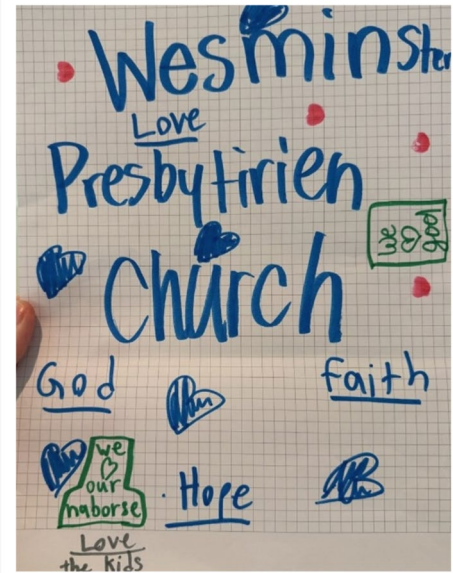 Wesminster
Love
Presbytirien
we ♡ god
Church
God
Faith
we
♡
our
naborse
Hope
Love
the kids